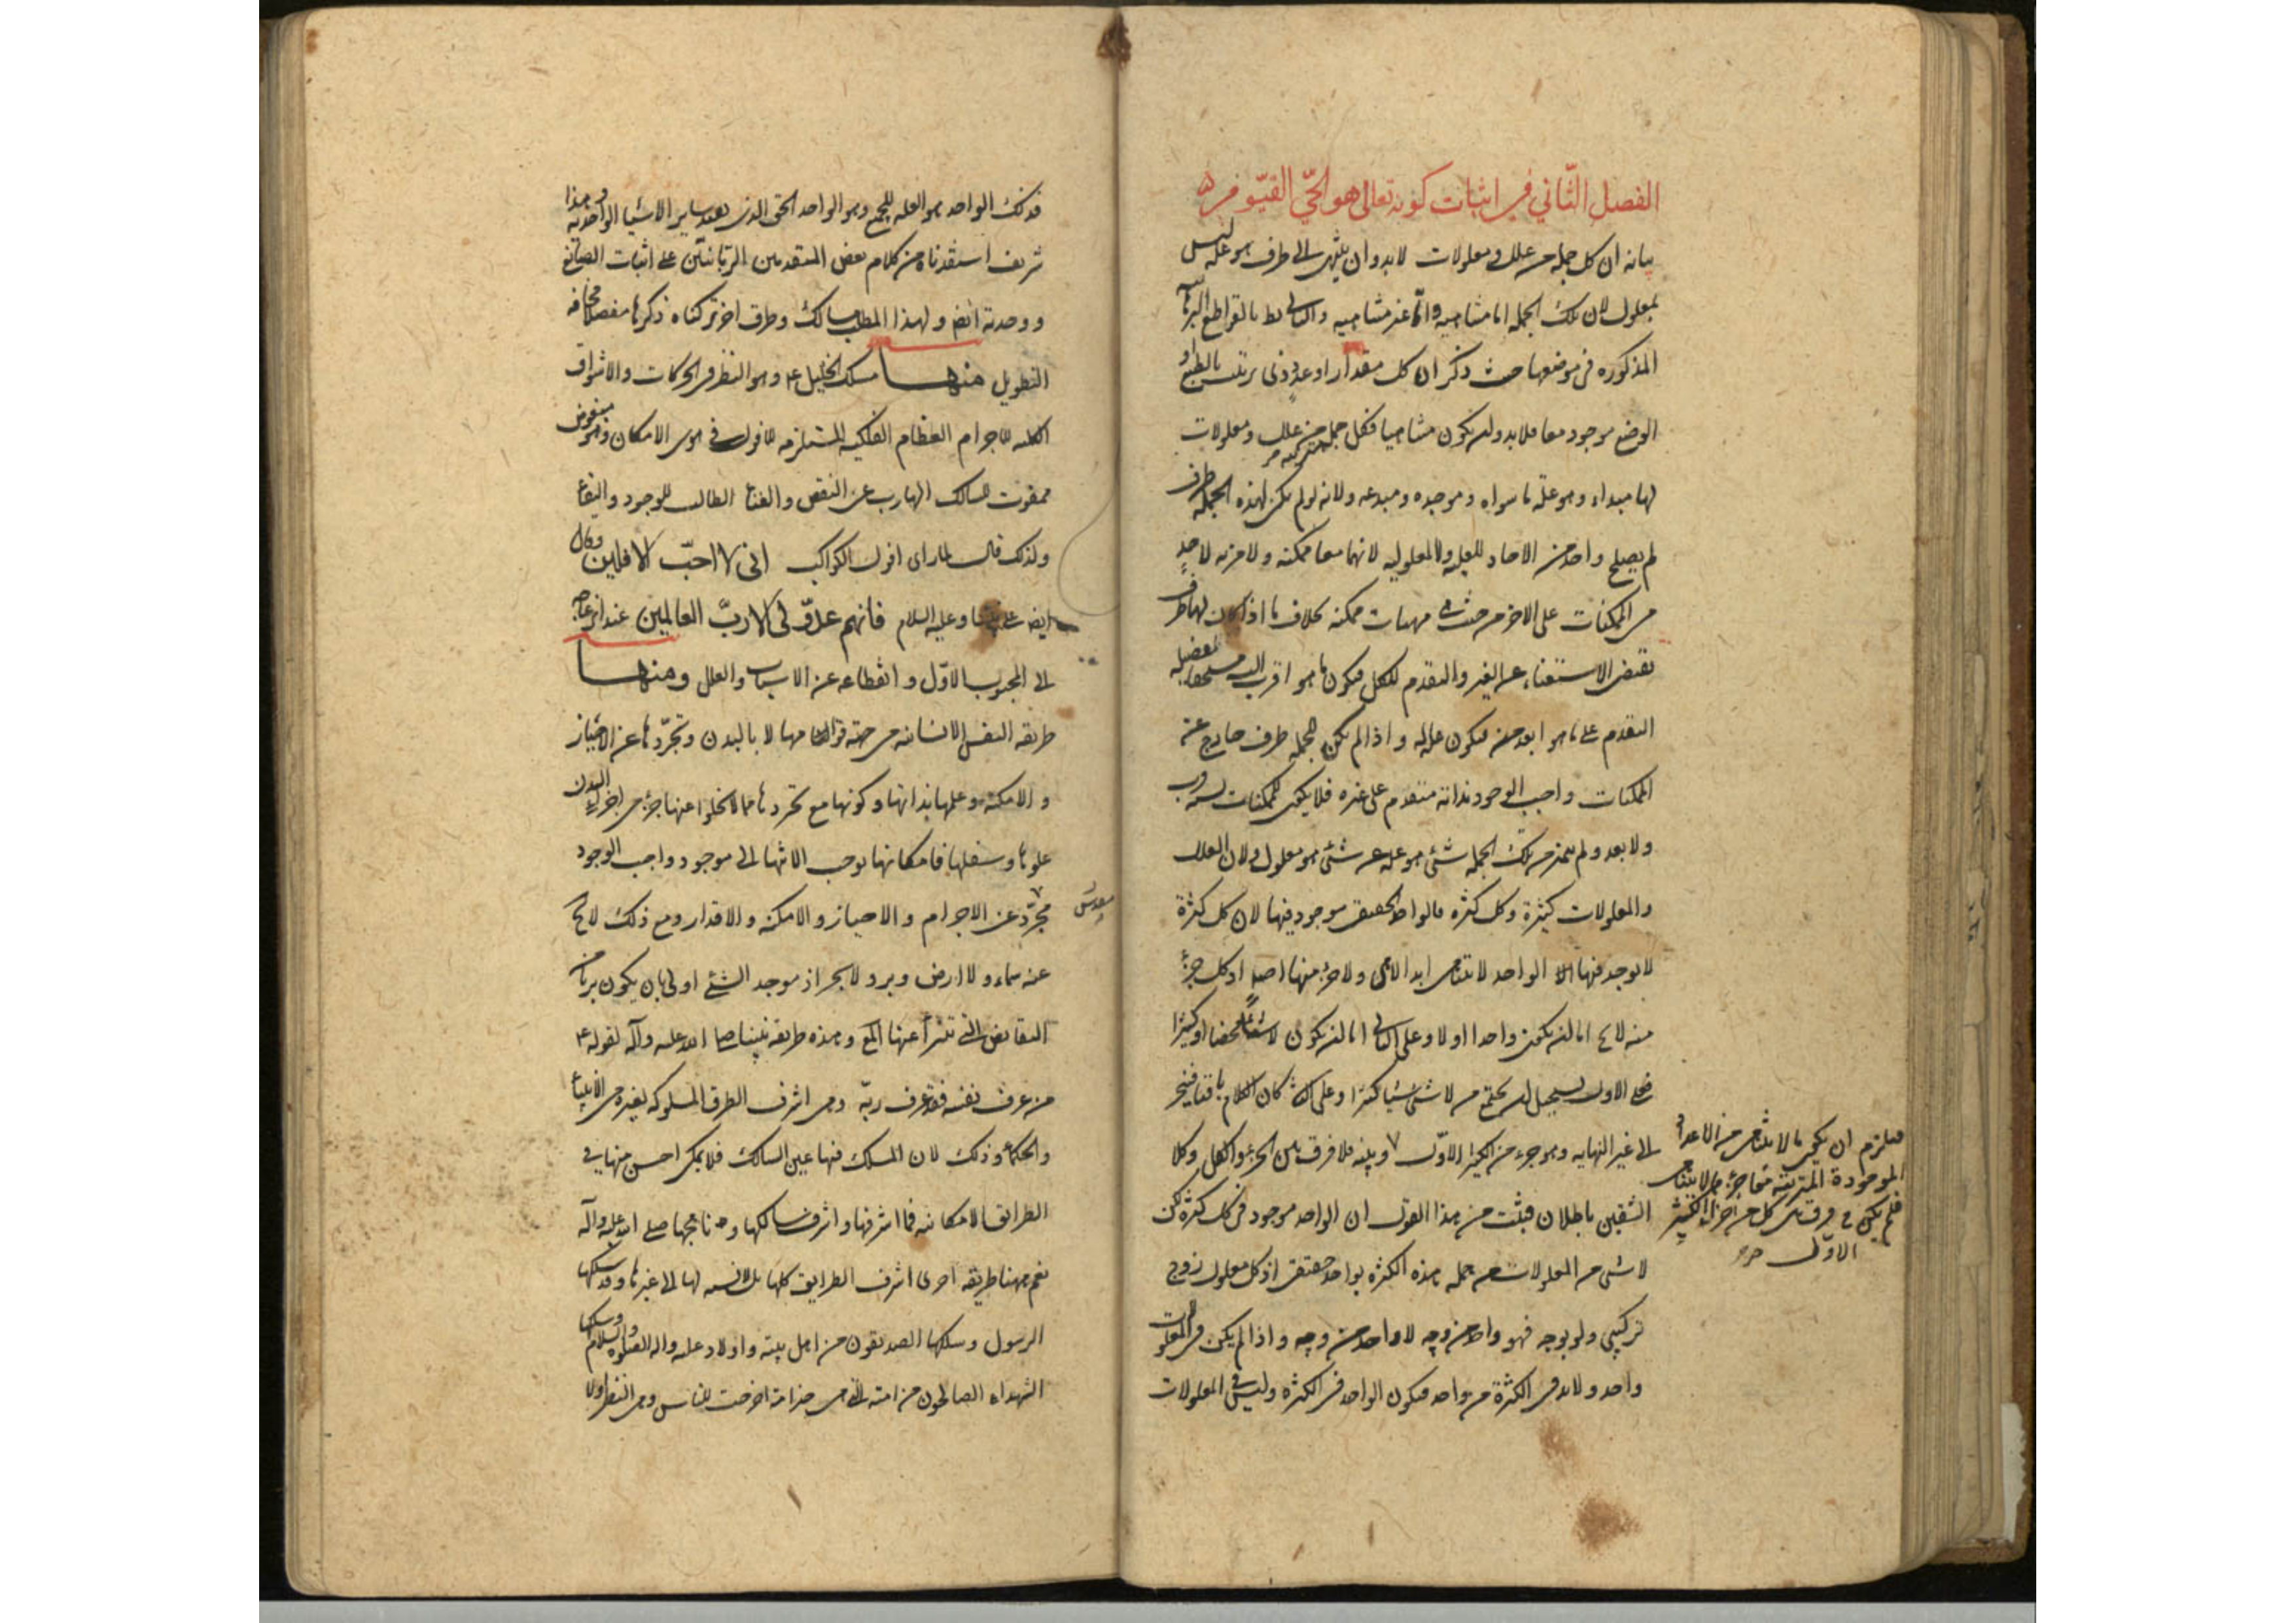 الفصل الثّاني في اثبات كونه تعالى هو الحيّ القيّوم
بيانه ان كل جمله من علل و معلولات لابد و ان ينتهى الى طرف هو عله ليس
بمعلول لان تلك الجمله اما متناهيه و اما غير متناهيه و الثانى بط بالقواطع البرهانيه
المذكوره فى موضعها حيث ذكر ان كل مقدار او عدد ذى ترتيب بالطبع او
الوضع موجود معا فلابد و ان يكون متناهيا فكل جمله متركبه من علل و معلولات
لها مبداء و هو علة ما سواه و موجده و مبدعه و لانه لو لم يكن لهذه الجمله طرف
لم يصلح واحد من الاحاد للعليه و لا المعلوليه لانهما معا ممكنه و لا مزيه لاحد
من الممكنات على الاخر من حيث هى مهيات ممكنه بخلاف ما اذا كان لها طرف
يقتضى الاستغناء عن الغير و التقدم للكل فيكون ما هو اقرب اليه مستحقا لفضيله
التقدم على ما هو ابعد منه فيكون عله له و اذا لم يكن للجمله طرف خارج عن
الممكنات واجب الوجود بذاته متقدم على غيره فلا يكون للممكنات اليه قرب
و لا بعد و لم يتميز من تلك الجمله شئ هو عله عن شئ هو معلول و لان العلل
و المعلولات كثيرة و كل كثره فالواحد الحقيقى موجود فيها لان كل كثرة
لا يوجد فيها الواحد لا يتناهى ابدا لا هى و لا جزء منها اصلا اذ كل جزء
منه لا يخ اما ان يكون واحدا او لا و على الثانى اما ان يكون لا شيئا محضا او كثيرا
فعلى الاول يستحيل ان يجتمع من لا شئ شيئا كثيرا و على الثانى كان الكلام باقيا فينجر
الى غير النهايه و هو جزء من الكثير الاوّل و بينه فلا فرق بين الجزء و الكل و كلا
الشقين باطلان فيثبت من هذا القول ان الواحد موجود فى كل كثره لكن
لا شئ من المعلولات من جمله هذه الكثره بواحد حقيقى اذ كل معلول زوج
تركيبى و لو بوجه فهو واحد من وجه لا واحد من وجه و اذا لم يكن فى المعلولات
واحد و لابد فى الكثرة من واحد فيكون الواحد فى الكثره و ليس فى المعلولات
فيلزم ان يكون ما لا يتناهى من الاعداد
الموجودة المترتبة معا جزء ما لا يتناهى
فلم يكن فرق بين كل من اجزاء الكثير
الاوّل
فذلك الواحد هو العله للجميع و هو الواحد الحق الذى يفيد ساير الاشيا الواحديه و هذا
شريف استفدناه من كلام بعض المتقدمين الربّانيّين على اثبات الصانع
و وحدته ايضا و لهذا المطلب مسالك و طرق اخر تركناه ذكرها مفصلا مخافه
التطويل منها مسلك الخليل ع و هو النظر فى الحركات و الاشواق
الكليه للاجرام العظام الفلكيه المستلزمه للافول فى هوى الامكان و هو مبغوض
ممقوت للسالك الهارب عن النقص و الفناء الطالب للوجود و البقاء
و لذلك قال لما راى افول الكواكب انى لا احبّ الافلين و قال
ايضا على نبينا و عليه السلام فانهم عدوّ لى الا ربّ العالمين عند انزعاجه
الى المحبوب الاوّل و انقطاعه عن الاسباب و العلل و منها
طريقه النفس الانسانيه من جهة قوامها لا بالبدن و تجرّدها عن الاحياز
و الامكنه و علمها بذاتها و كونها مع تجردها مما لا يخلوا عنها جزء من اجزاء البدن
علوها و سفلها فامكانها يوجب الانتها الى موجود واجب الوجود
مجرّد عن الاجرام و الاحياز و الامكنه و الاقدار و مع ذلك لا يخ
مقدس
عنه سماء و لا ارض و بر و لا بحر اذ موجد الشئ اولى بان يكون بريئا من
النقايص التى تتبرأ عنها المع و هذه طريقه نبينا صلى الله عليه و آله لقوله ع
من عرف نفسه فقد عرف ربّه و هى اشرف الطرق المسلوكه لغيره من الانبياء
و الحكماء و ذلك لان المسلك فيها عين السالك فلا يمكن احسن منها فى
الطرائق الامكانيه فما اشرفها و اشرف سالكها و ناهجها صلى الله عليه و آله
نعم ههنا طريقه اخرى اشرف الطرايق كلها بل لا نسبه لها الى غيرها و قد سلكها
الرسول و سلكها الصديقون من اهل بيته و اولاده عليه و اله الصلوه و السلام و سلكها
الشهداء الصالحون من امته التى هى خير امة اخرجت للناس و هى النظر اولا